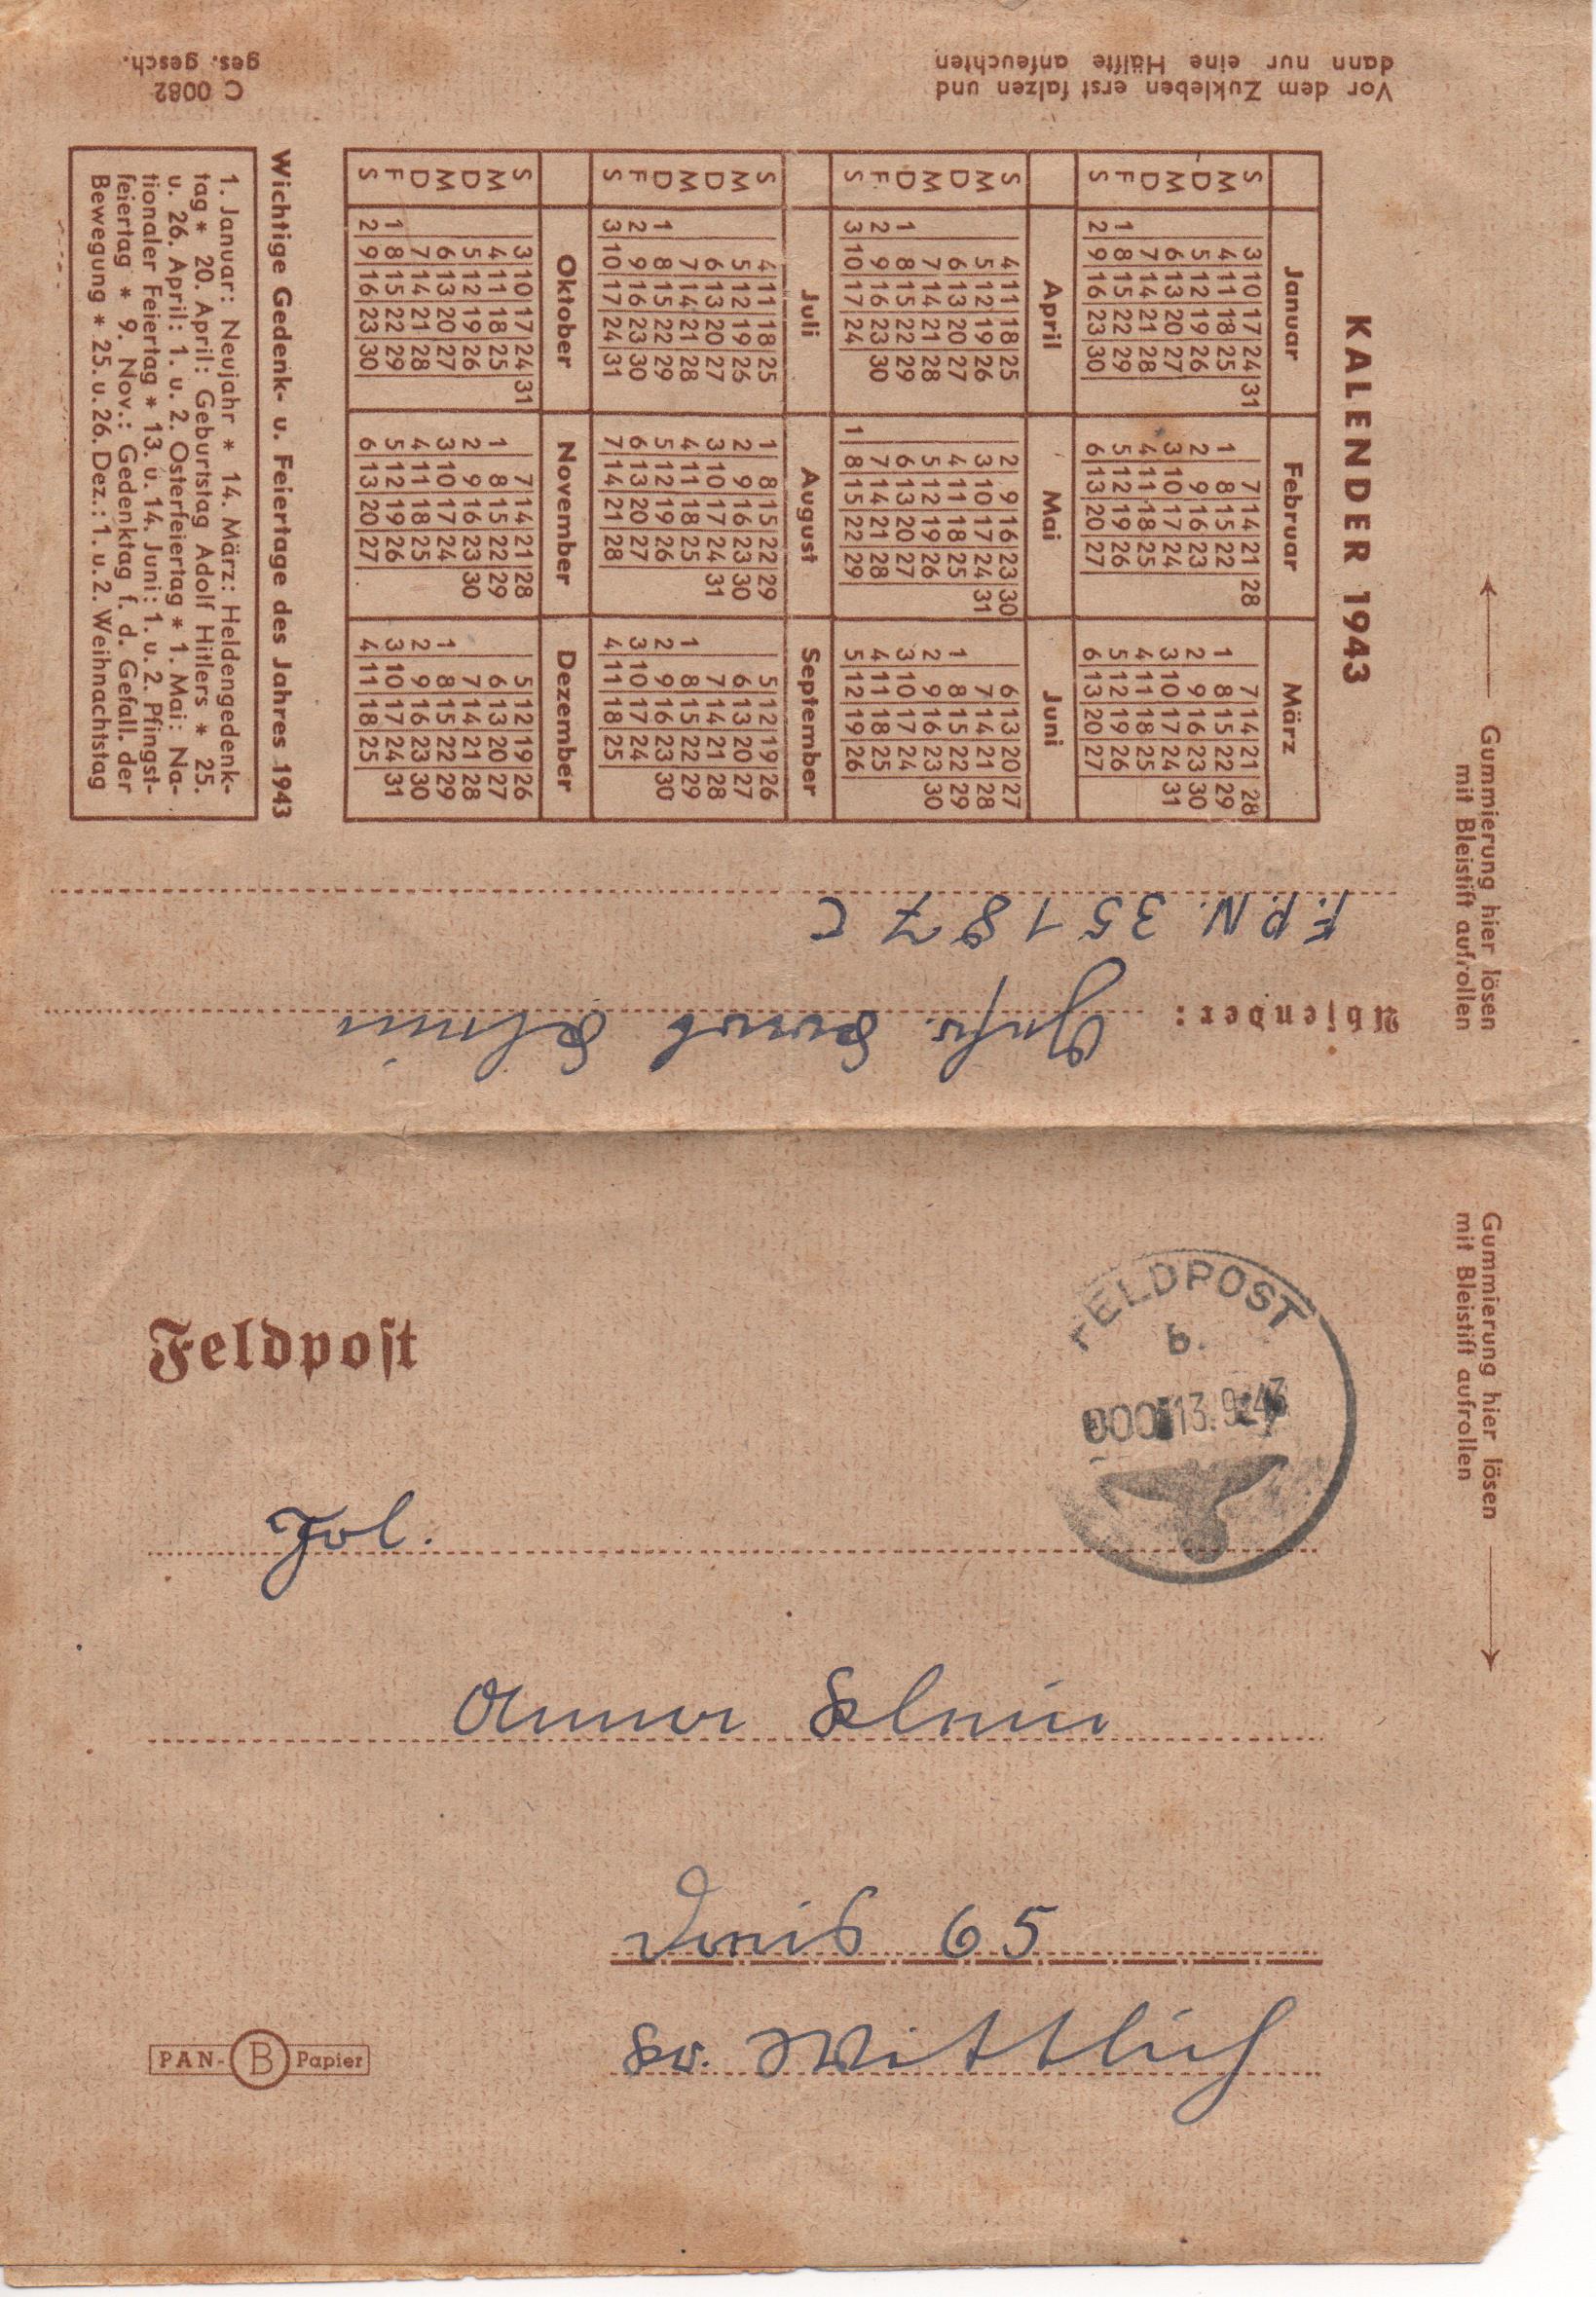 C 0082
ges. gesch.
Vor dem Zukleben erst falzen und
dann nur eine Hälfte anfeuchten
KALENDER 1943
Januar Februar März
S 3 10 17 24 31 7 14 21 28 7 14 21 28
M 4 11 18 25 1 8 15 22 1 8 15 22 29
D 5 12 19 26 2 9 16 23 2 9 16 23 30
M 6 13 20 27 3 10 17 24 3 10 17 24 31
D 7 14 21 28 4 11 18 25 4 11 18 25
F 1 8 15 22 29 5 12 19 26 5 12 19 26
S 2 9 16 23 30 6 13 20 27 6 13 20 27
April Mai Juni
S 4 11 18 25 2 9 16 23 30 6 13 20 27
M 5 12 19 26 3 10 17 24 31 7 14 21 28
D 6 13 20 27 4 11 18 25 1 8 15 22 29
M 7 14 21 28 5 12 19 26 2 9 16 23 30
D 1 8 15 22 29 6 13 20 27 3 10 17 24
F 2 9 16 23 30 7 14 21 28 4 11 18 25
S 3 10 17 24 1 8 15 22 29 5 12 19 26
Juli August September
S 4 11 18 25 1 8 15 22 29 5 12 19 26
M 5 12 19 26 2 9 16 23 30 6 13 20 27
D 6 13 20 27 3 10 17 24 31 7 14 21 28
M 7 14 21 28 4 11 18 25 1 8 15 22 29
D 1 8 15 22 29 5 12 19 26 2 9 16 23 30
F 2 9 16 23 30 6 13 20 27 3 10 17 24
S 3 10 17 24 31 7 14 21 28 4 11 18 25
Oktober November Dezember
S 3 10 17 24 31 7 14 21 28 5 12 19 26
M 4 11 18 25 1 8 15 22 29 6 13 20 27
D 5 12 19 26 2 9 16 23 30 7 14 21 28
M 6 13 20 27 3 10 17 24 1 8 15 22 29
D 7 14 21 28 4 11 18 25 2 9 16 23 30
F 1 8 15 22 29 5 12 19 26 3 10 17 24 31
S 2 9 16 23 30 6 13 20 27 4 11 18 25
Wichtige Gedenk- u. Feiertage des Jahres 1943
1. Januar: Neujahr * 14. März: Heldengedenk-
tag * 20. April: Geburtstag Adolf Hitlers * 25.
u. 26. April: 1. u. 2. Osterfeiertag * 1. Mai: Na-
tionaler Feiertag * 13. u. 14. Juni: 1. u. 2. Pfingst-
feiertag * 9. Nov.: Gedenktag f. d. Gefall. der
Bewegung * 25. u. 26. Dez.: 1. u. 2. Weihnachtstag
Gummierung hier lösen
mit Bleistift aufrollen
Absender:
F.P.N. 35187 C
Gummierung hier lösen
mit Bleistift aufrollen
Feldpost
FELDPOST
b
13.9.43
Anna
65
Kr. Wittlich
PAN-B Papier